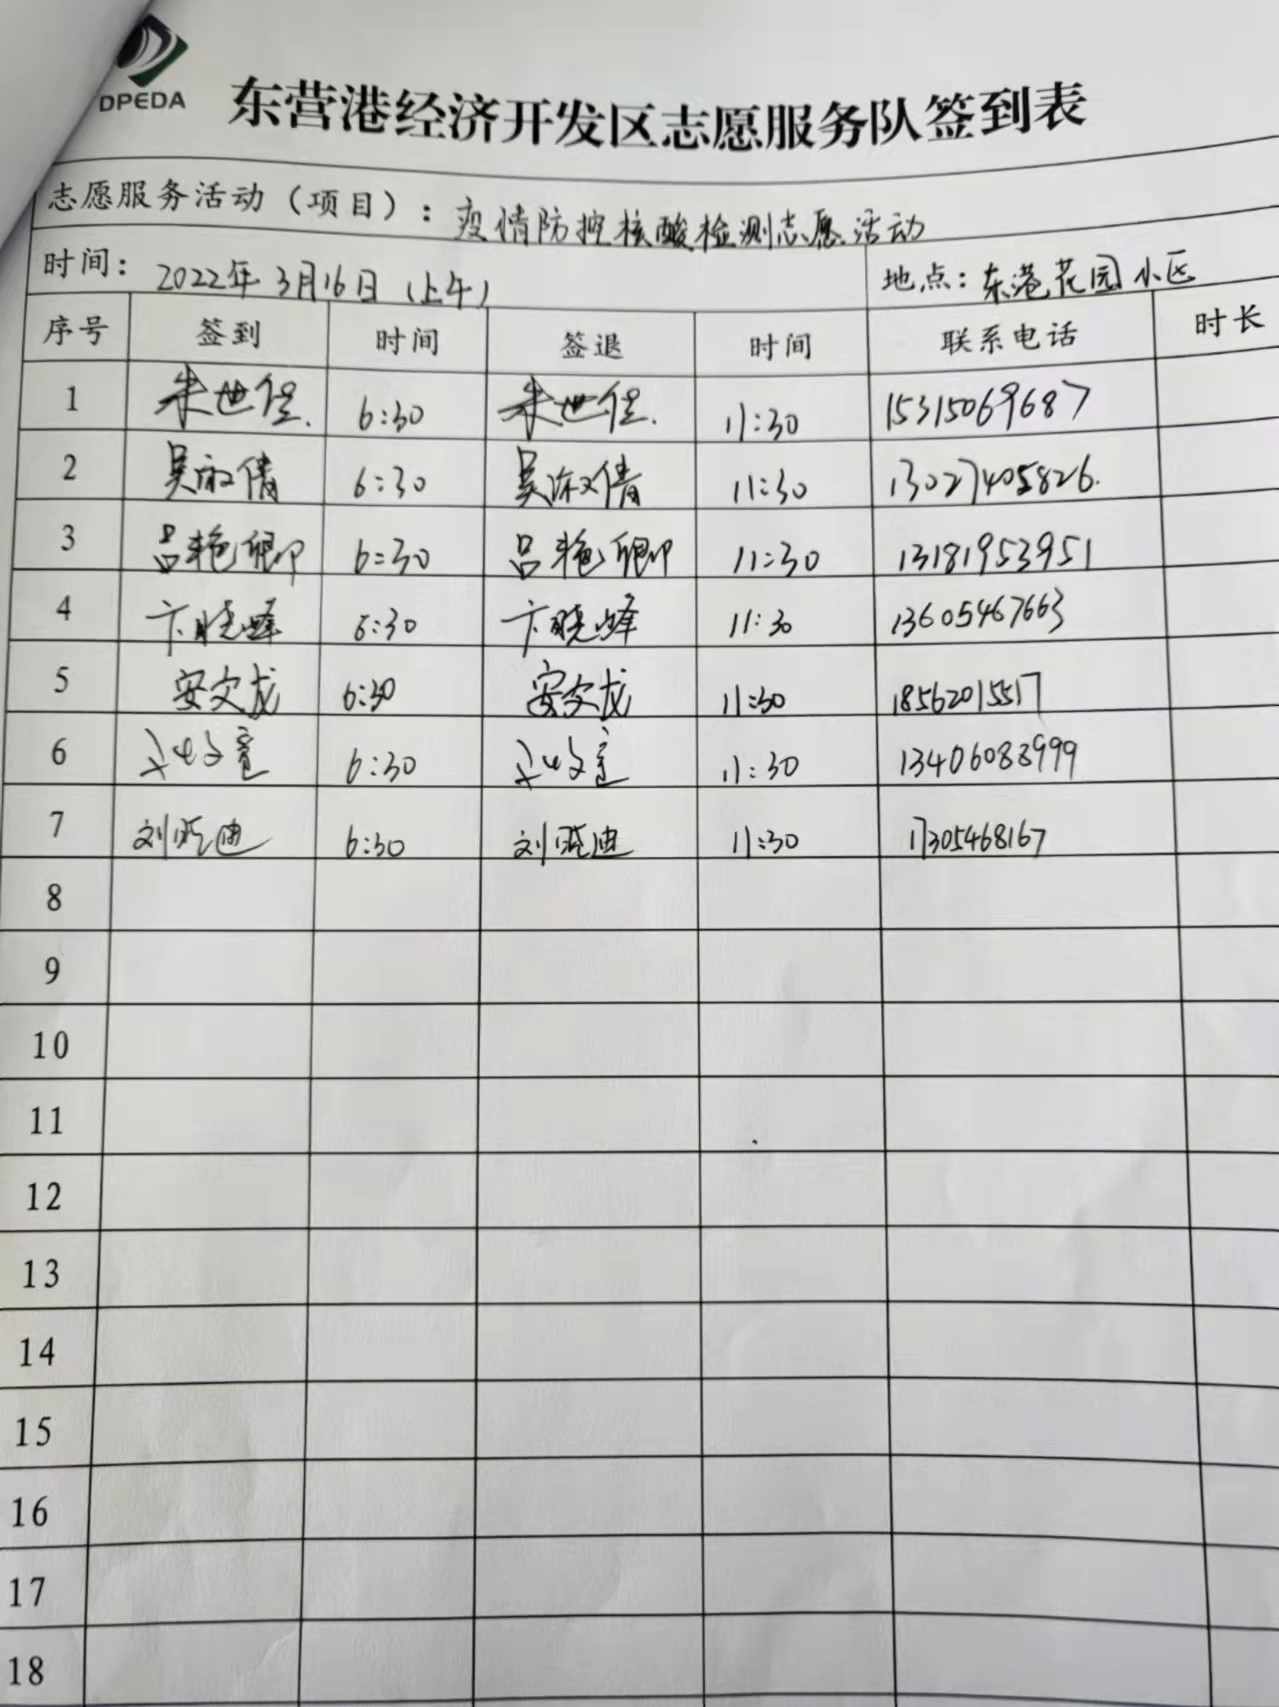 DPEDA
东营港经济开发区志愿服务队签到表
志愿服务活动（项目）：疫情防控核酸检测志愿活动
时间：2022年3月16日（上午） 地点：东港花园小区
序号 签到 时间 签退 时间 联系电话 时长
1 朱世俊. 6:30 朱世俊. 11:30 15315069687
2 吴淑倩 6:30 吴淑倩 11:30 13027405826.
3 吕艳卿 6:30 吕艳卿 11:30 13181953951
4 卞晓峰 6:30 卞晓峰 11:30 13605467663
5 安文龙 6:30 安文龙 11:30 18562015517
6 6:30 11:30 13406083999
7 刘晓迪 6:30 刘晓迪 11:30 17305468167
8
9
10
11
12
13
14
15
16
17
18